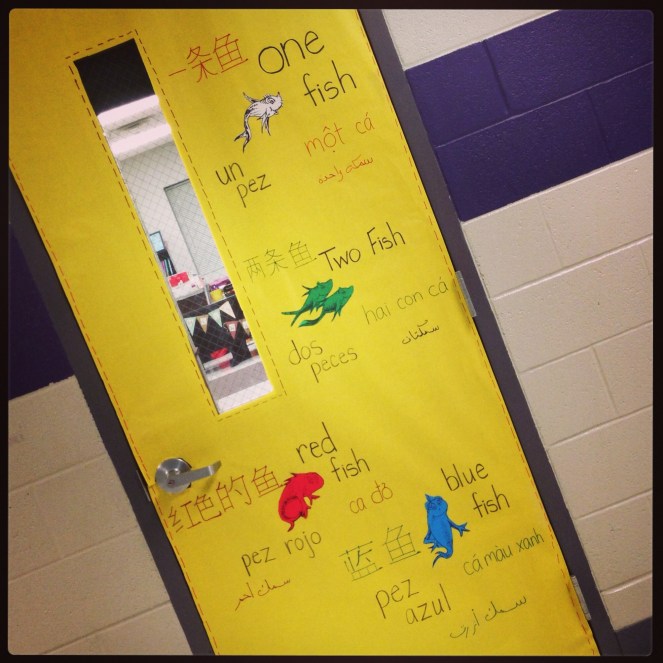 一条鱼
one
fish
một cá
un
pez
سمكة واحدة
两条鱼
Two Fish
hai con cá
dos
peces
سمكتان
红色的鱼
red
fish
ca đỏ
pez rojo
سمك احمر
蓝鱼
blue
fish
cá màu xanh
pez
azul
سمك أزرق